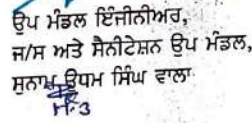 ਉਪ ਮੰਡਲ ਇੰਜੀਨੀਅਰ,
ਜ/ਸ ਅਤੇ ਸੈਨੀਟੇਸ਼ਨ ਉਪ ਮੰਡਲ,
ਸੁਨਾਮ ਊਧਮ ਸਿੰਘ ਵਾਲਾ